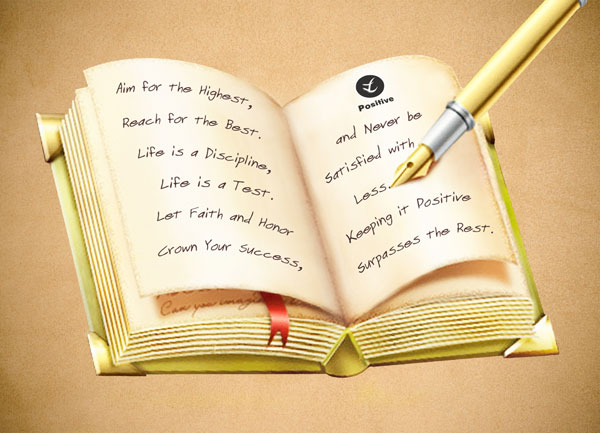 Aim for the Highest,
Reach for the Best.
Life is a Discipline,
Life is a Test.
Let Faith and Honor
Crown Your Success,
Can you imagine
Positive
and Never be
Satisfied with
Less.
Keeping it Positive
Surpasses the Rest.